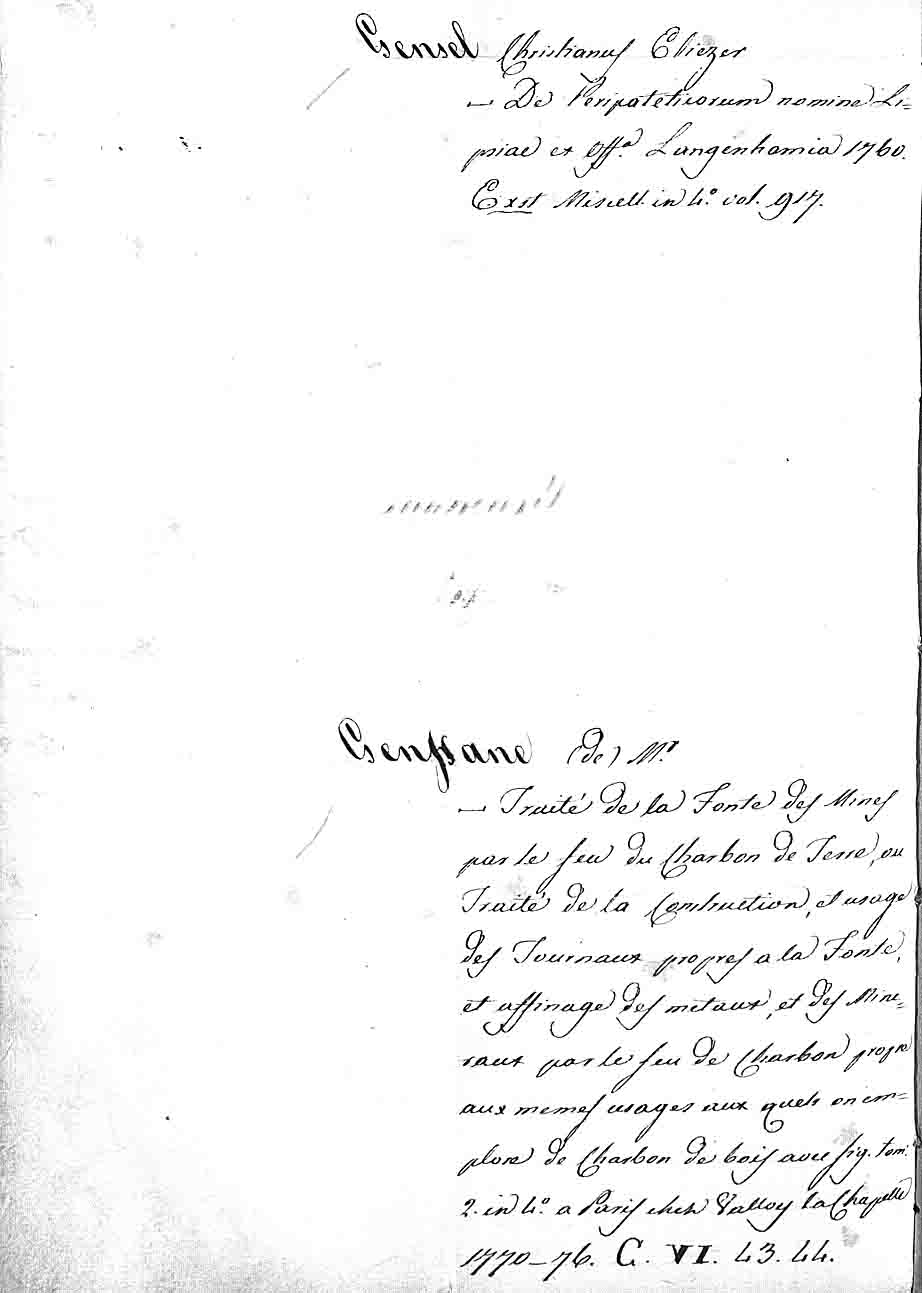 Gensel Christianus Eliezer
— De Peripateticorum nomine Li=
psiae ex Off.ª Langenhemia 1760.
Exst Miscell. in 4.º vol. 917.
Genssane (de) M.r
— Traité de la Fonte des Mines
par le feu du Charbon de Terre, ou
Traité de la Construction, et usage
des Fournaux propres a la Fonte,
et affinage des metaux, et des Mine=
raux par le feu de Charbon propre
aux memes usages aux quels on em=
ploye de Charbon de bois avec fig. tom.
2. in 4.º a Paris chez Valley la Chapelle
1770-76. C. VI. 43. 44.